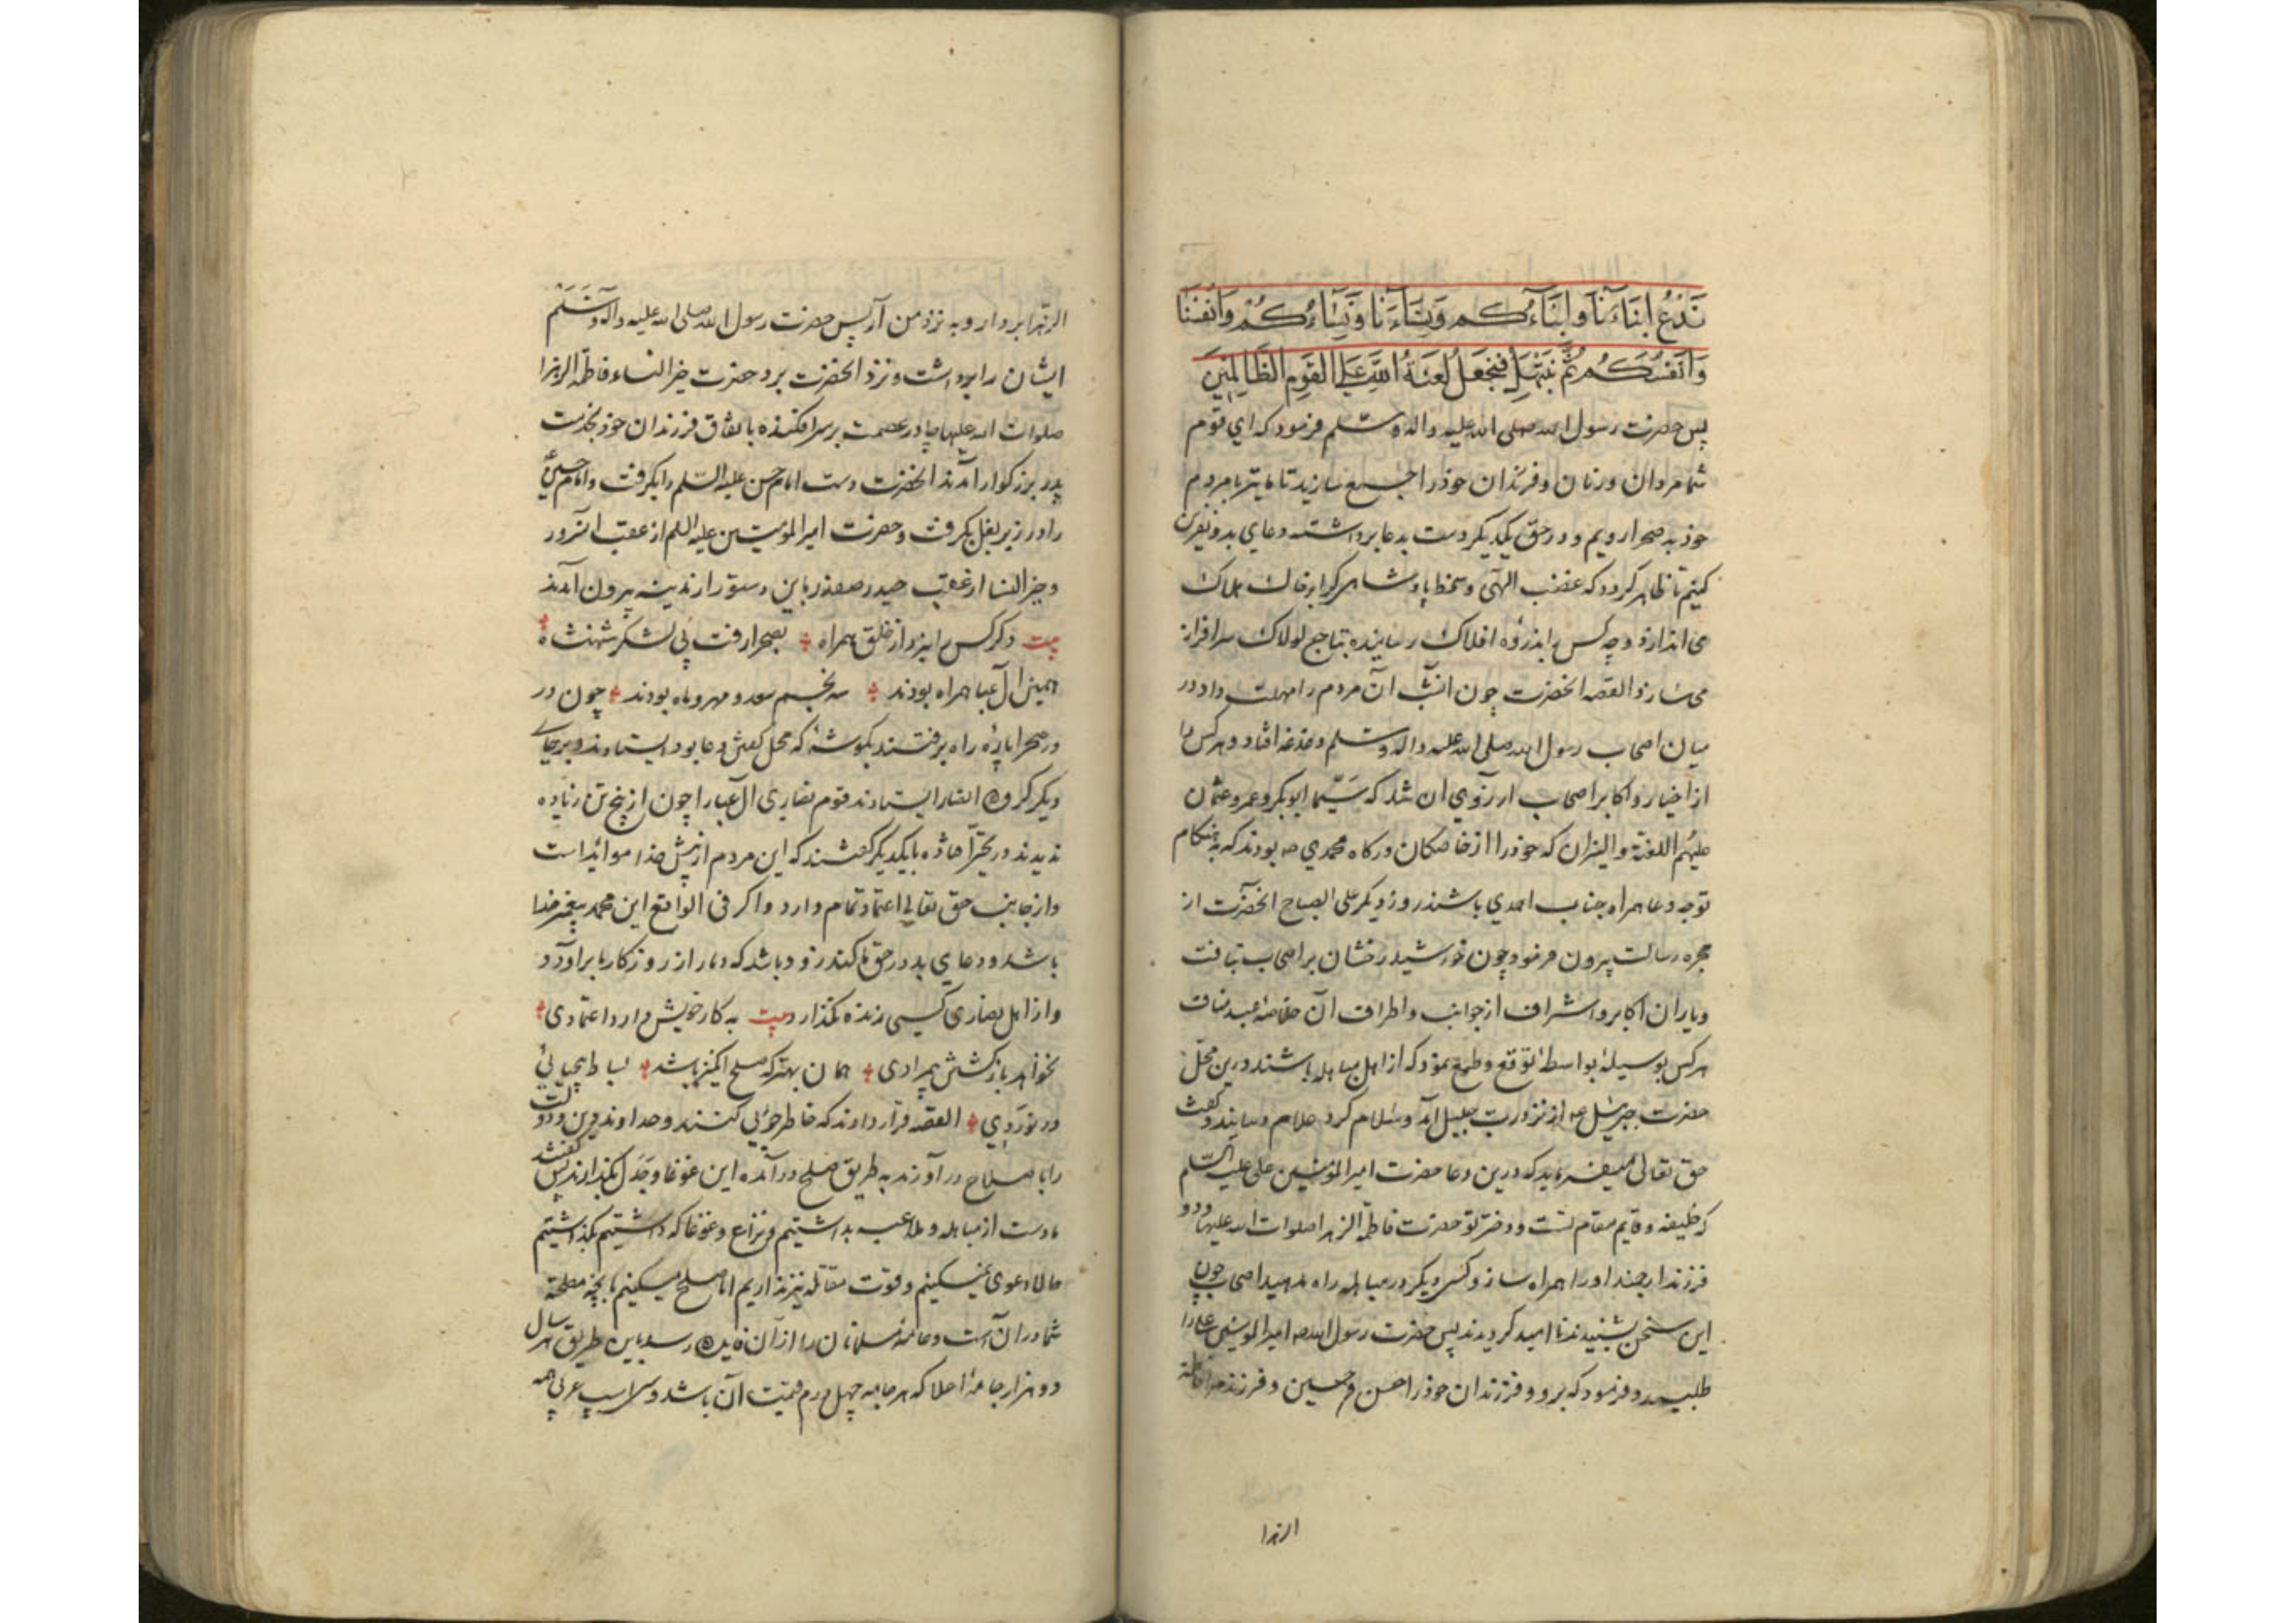 نَدْعُ اَبْنَاءَنَا وَاَبْنَاءَكُمْ وَنِسَاءَنَا وَنِسَاءَكُمْ وَاَنْفُسَنَا
وَاَنْفُسَكُمْ ثُمَّ نَبْتَهِلْ فَنَجْعَلْ لَعْنَةُ اللَّهِ عَلَى القَوْمِ الظَّالِمِينَ
پس حضرت رسول الله صلی الله علیه واله وسلم فرمود که ای قوم
شما مردان وزنان وفرزندان خوذرا جمع سازید تا ما نیز با مردم
خوذ به صحرا رویم ودر حق یکدیکر دست بدعا برداشته دعای بد ونفرین
کنیم تا ظاهر کردد که غضب الهی وسخط پادشاهی که را بر خاک هلاک
می اندازد وچه کس را بذروه افلاک رسانیده بتاج لولاک سرافراز
می سازد القصه انحضرت چون انشب آن مردم را مهلت داد در
میان اصحاب رسول الله صلی الله علیه واله وسلم دغدغه افتاد وهر کس را
از اخیار واکابر اصحاب ارزوی ان شد که سیما ابوبکر وعمر وعثمان
علیهم اللعنة والنیران که خوذرا از خاصکان درکاه محمدی صه بودند که به هنکام
توجه دعا همراه جناب احمدی باشند روز دیکر علی الصباح انحضرت از
حجره رسالت بیرون فرمود وچون خورشید رخشان بر اصحاب بتافت
ویاران اکابر واشراف از جوانب واطراف آن خلاصه عبد مناف
هر کس بوسیله بواسطه توقع وطمع نمود که از اهل مباهله باشند درین محل
حضرت جبرئیل عه از نزد رب جلیل آمد وسلام کرد سلام رسانید وکفت
حق تعالی میفرماید که درین دعا حضرت امیرالمؤمنین علی علیه السلم
که خلیفه وقایم مقام تست ودختر تو حضرت فاطمة الزهرا صلوات الله علیها ودو
فرزند ارجمند اورا همراه ساز وکسی دیکر در مباهله راه مدهید اصحاب چون
این سخن بشنیدند ناامید کردیدند پس حضرت رسول الله صه امیرالمومنین علی را
طلبید وفرمود که برو وفرزندان خوذرا حسن وحسین وفرزند مرا فاطمة
الزهرا
الزهرا بردار وبه نزد من آر پس حضرت رسول الله صلی الله علیه واله وسلم
ایشان را برداشت ونزد انحضرت برد حضرت خیر النساء فاطمة الزهرا
صلوات الله علیها چادر عصمت بر سر افکنده باتفاق فرزندان خوذ بخدمت
پدر بزرکوار آمدند انحضرت دست امام حسن علیه السلم را بکرفت وامام حسین ع
را در زیر بغل بکرفت وحضرت امیرالمؤمنین علیه السلم از عقب انسرور
وخیر النسا از عقب حیدر صفدر باین دستور از مدینه بیرون آمدند
بیت دکر کس را نبرد از خلق همراه بصحرا رفت بی لشکر شهنشاه
همین ال عبا همراه بودند سه نجم سعد ومهر وماه بودند چون در
در صحرا پاره راه برفتند بکوشه که محل کفتن دعا بود ایستادند وبر جای
دیکر کروه انصار ایستادند قوم نصاری ال عبا را چون از پنج تن زیاده
ندیدند در تحیر افتاده بایکدیکر کفتند که این مردم از پیش خدا مواید است
واز جانب حق تعالی اعتماد تمام دارد واکر فی الواقع این محمد پیغمبر خدا
باشد ودعای بد در حق ما کند زود باشد که دمار از روزکار ما براورد
واز اهل نصاری کسی زنده نکذارد بیت به کار خویش دارد اعتمادی
نخواهد باز کشتن بی مرادی همان بهتر که صلح انکیز باشد بساط بی حیائی
در نوردی القصه قرار دادند که خاطر جوئی کنند وخداوند دین ودولت
را با صلاح در آورند به طریق صلح در آمده این غوغا وجدل بکذارند پس کفتند
ما دست از مباهله وملاعبه بداشتیم ونزاع وغوغا که داشتیم بکذاشتیم
حالا دعوی نمیکنیم وقوت مقاتله نیز نداریم اما صلح میکنیم بانچه مصلحت
شما دران است وعامه مسلمانان را از آن فایده رسد باین طریق هر سال
دو هزار جامه اعلا که هر جامه چهل درم قیمت آن باشد وسی اسب عربی همه